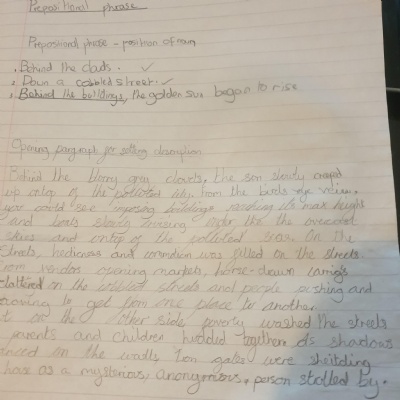 Prepositional phrase
Prepositional phrase - position of noun
Behind the clouds.
Down a cobbled street.
Behind the buildings, the golden sun began to rise
Opening paragraph for setting description
Behind the grey clouds, the son slowly creped
up ontop of the polluted city, from the birds eye view,
you could see imposing buildings reaching its max height
and boats slowly under the the overcast
skies and ontop of the polluted On the
streets, and was filled on the streets.
From vendors opening markets, horse-drawn
clattered on the cobbled streets and people pushing and
to get from one place to another.
on the other side, poverty washed the streets
parents and children huddled together. As shadows
danced on the walls, Iron gates were
as a mysterious, anonymous, person strolled by.